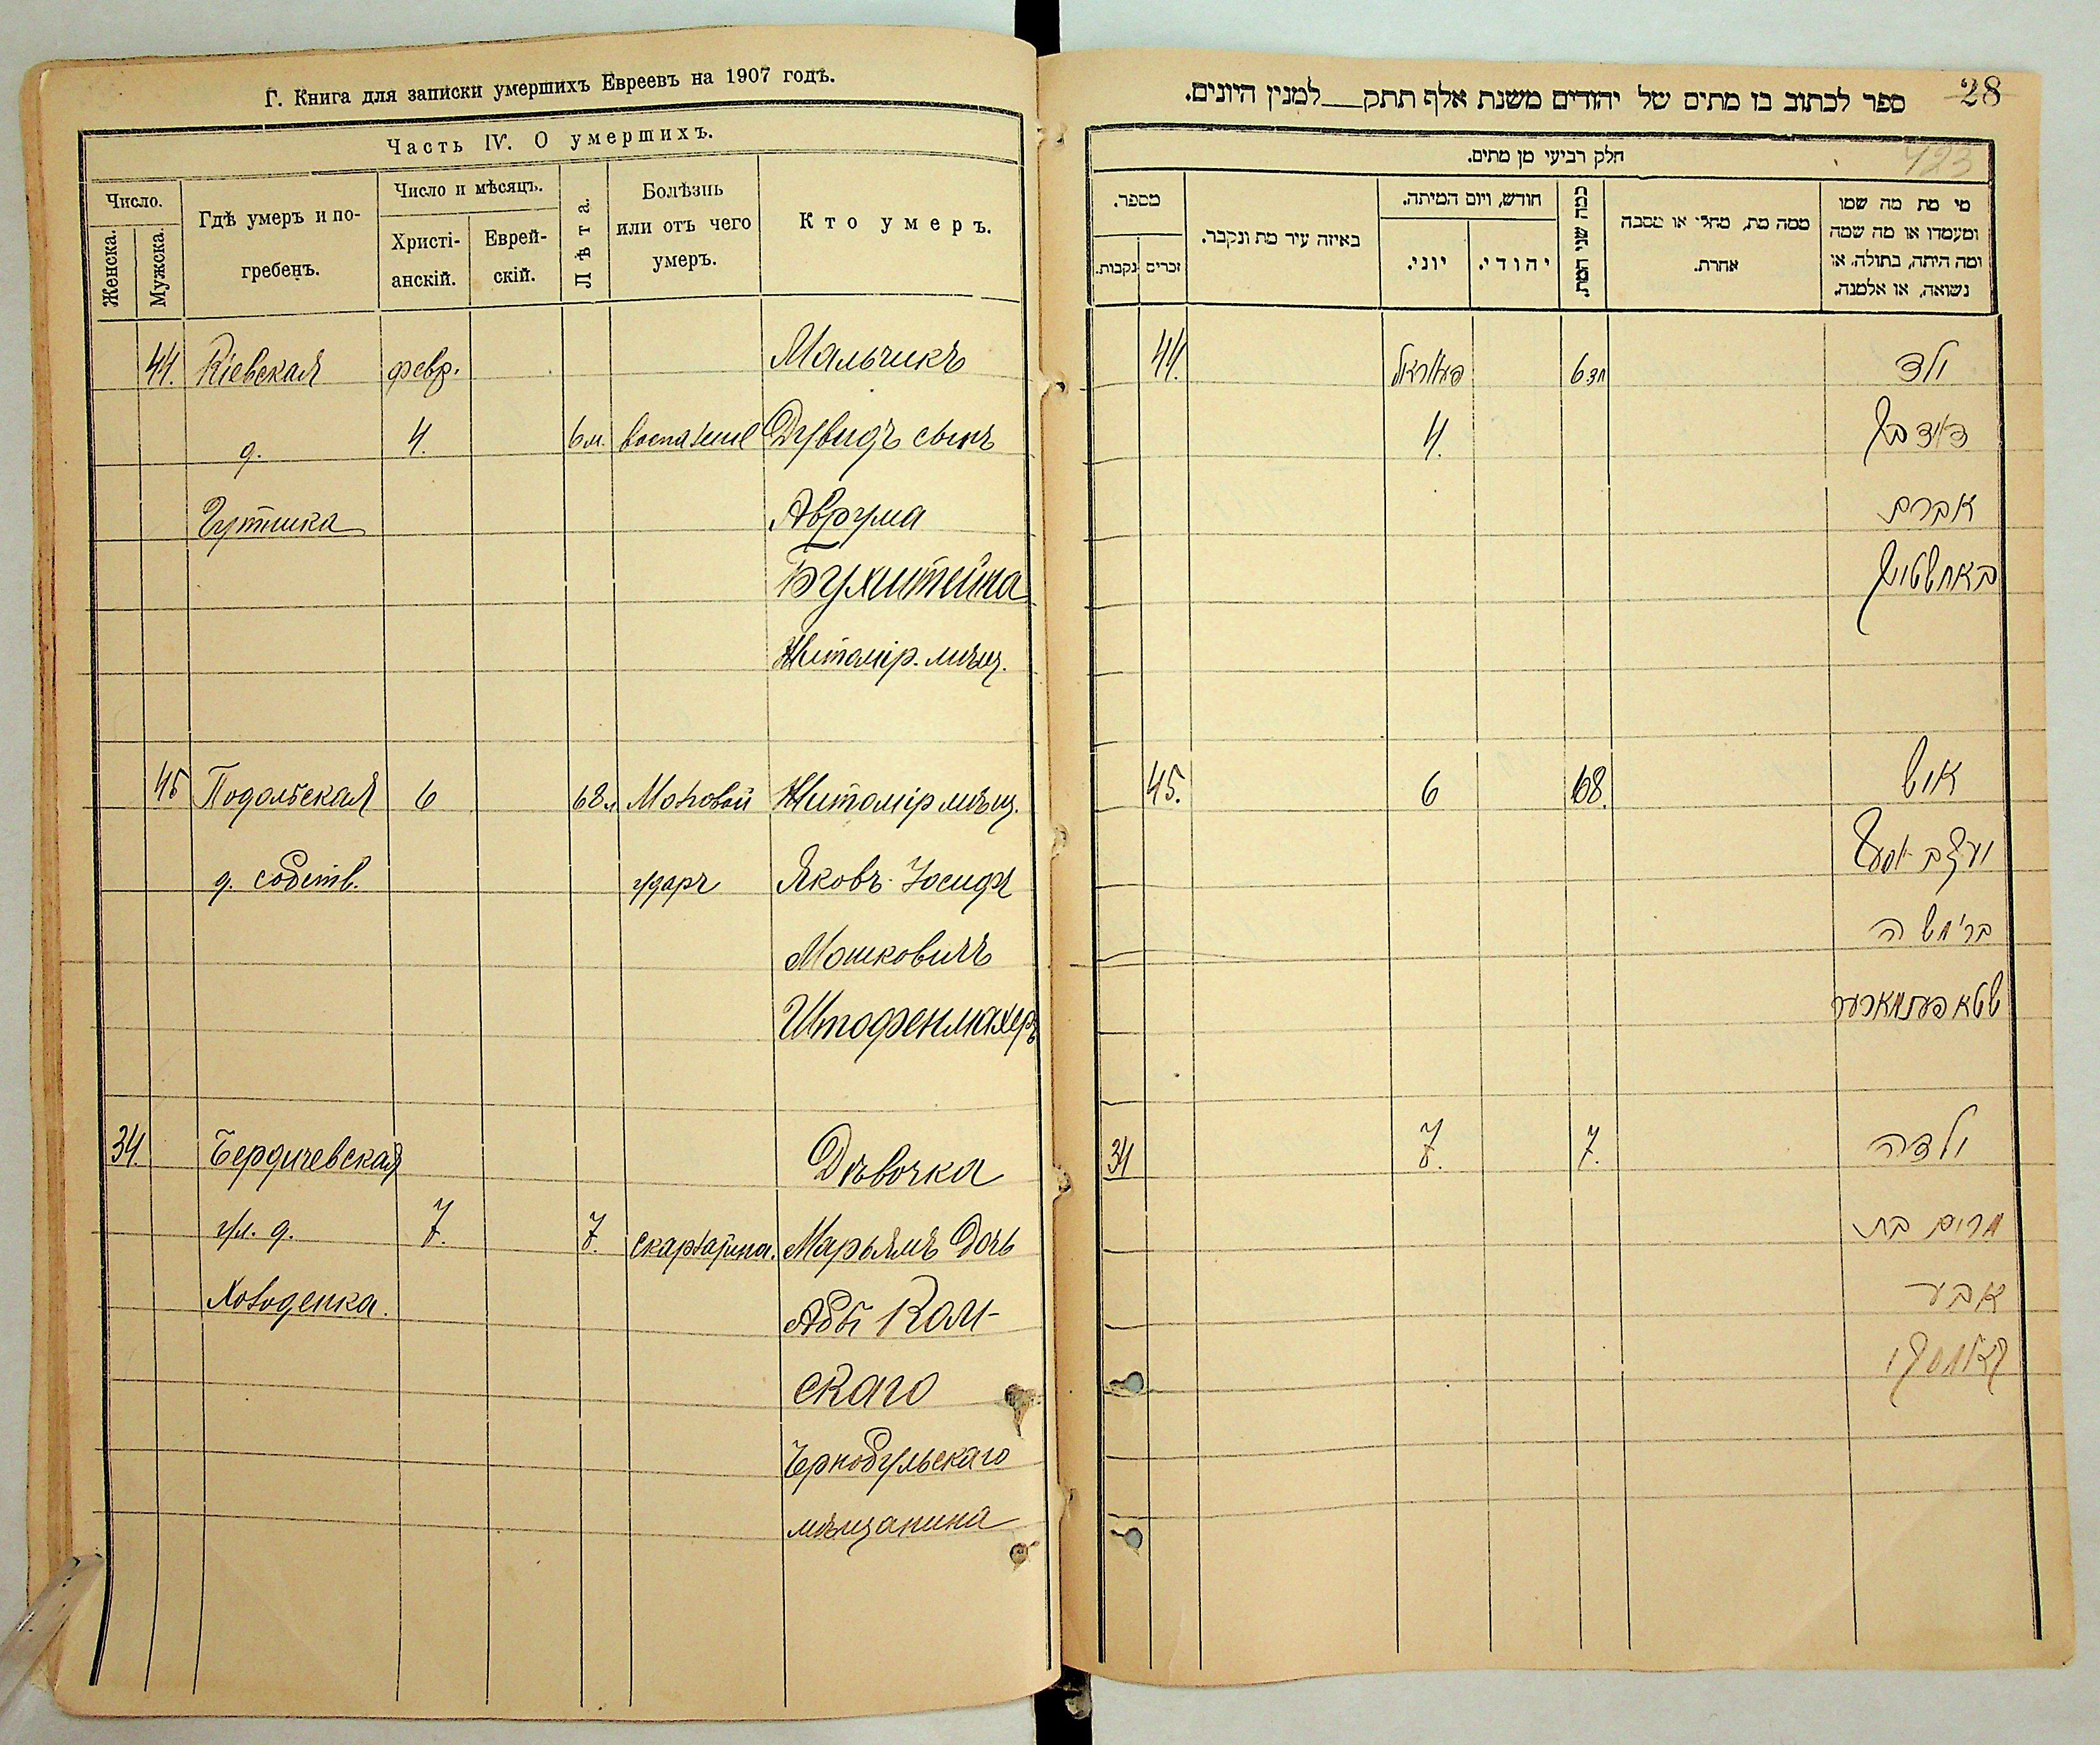 Г. Книга для записки умершихъ Евреевъ на 1907 годъ.
Часть IV. О умершихъ.
Число.
Женска.
Мужска.
Гдѣ умеръ и по-
гребенъ.
Число и мѣсяцъ.
Христі-
анскій.
Еврей-
скій.
Лѣта.
Болѣзнь
или отъ чего
умеръ.
Кто умеръ.
44. Кіевская февр. Мальчикъ
д. 4. 6 м. воспаленіе Дувидъ сынъ
Гутника Аврума
Бухштейна
Житомір. мѣщ.
45 Подольская 6 68 л. Мозговой Житомір мѣщ.
д. собств. ударъ Яковъ-Іосифъ
Мошковичъ
Штофенмахеръ
34. Бердичевская Дѣвочка
ул. д. 7. 7. скарлатина. Марьямъ дочь
Холоденка. Абы Кам-
скаго
Чернобульскаго
мѣщанина
28
ספר לכתוב בו מתים של יהודים משנת אלף תתק__למנין היונים.
423
חלק רביעי מן מתים.
מספר.
נקבות.
זכרים
באיזה עיר מת ונקבר.
חודש, ויום המיתה.
יוני.
יהודי.
כמה שני המת.
ממה מת, מחלי או מסבה
אחרת.
מי מת מה שמו
ומעמדו או מה שמה
ומה היתה, בתולה, או
נשואה, או אלמנה.
44. 6 חד ילד
4. דוד בן
אברם
באחשטיין
45. 6 68. איש
יעקב יוסף
בר' משה
שטאפענמאכער
34 7. 7. ילדה
מרים בת
אבא
קאמסקי